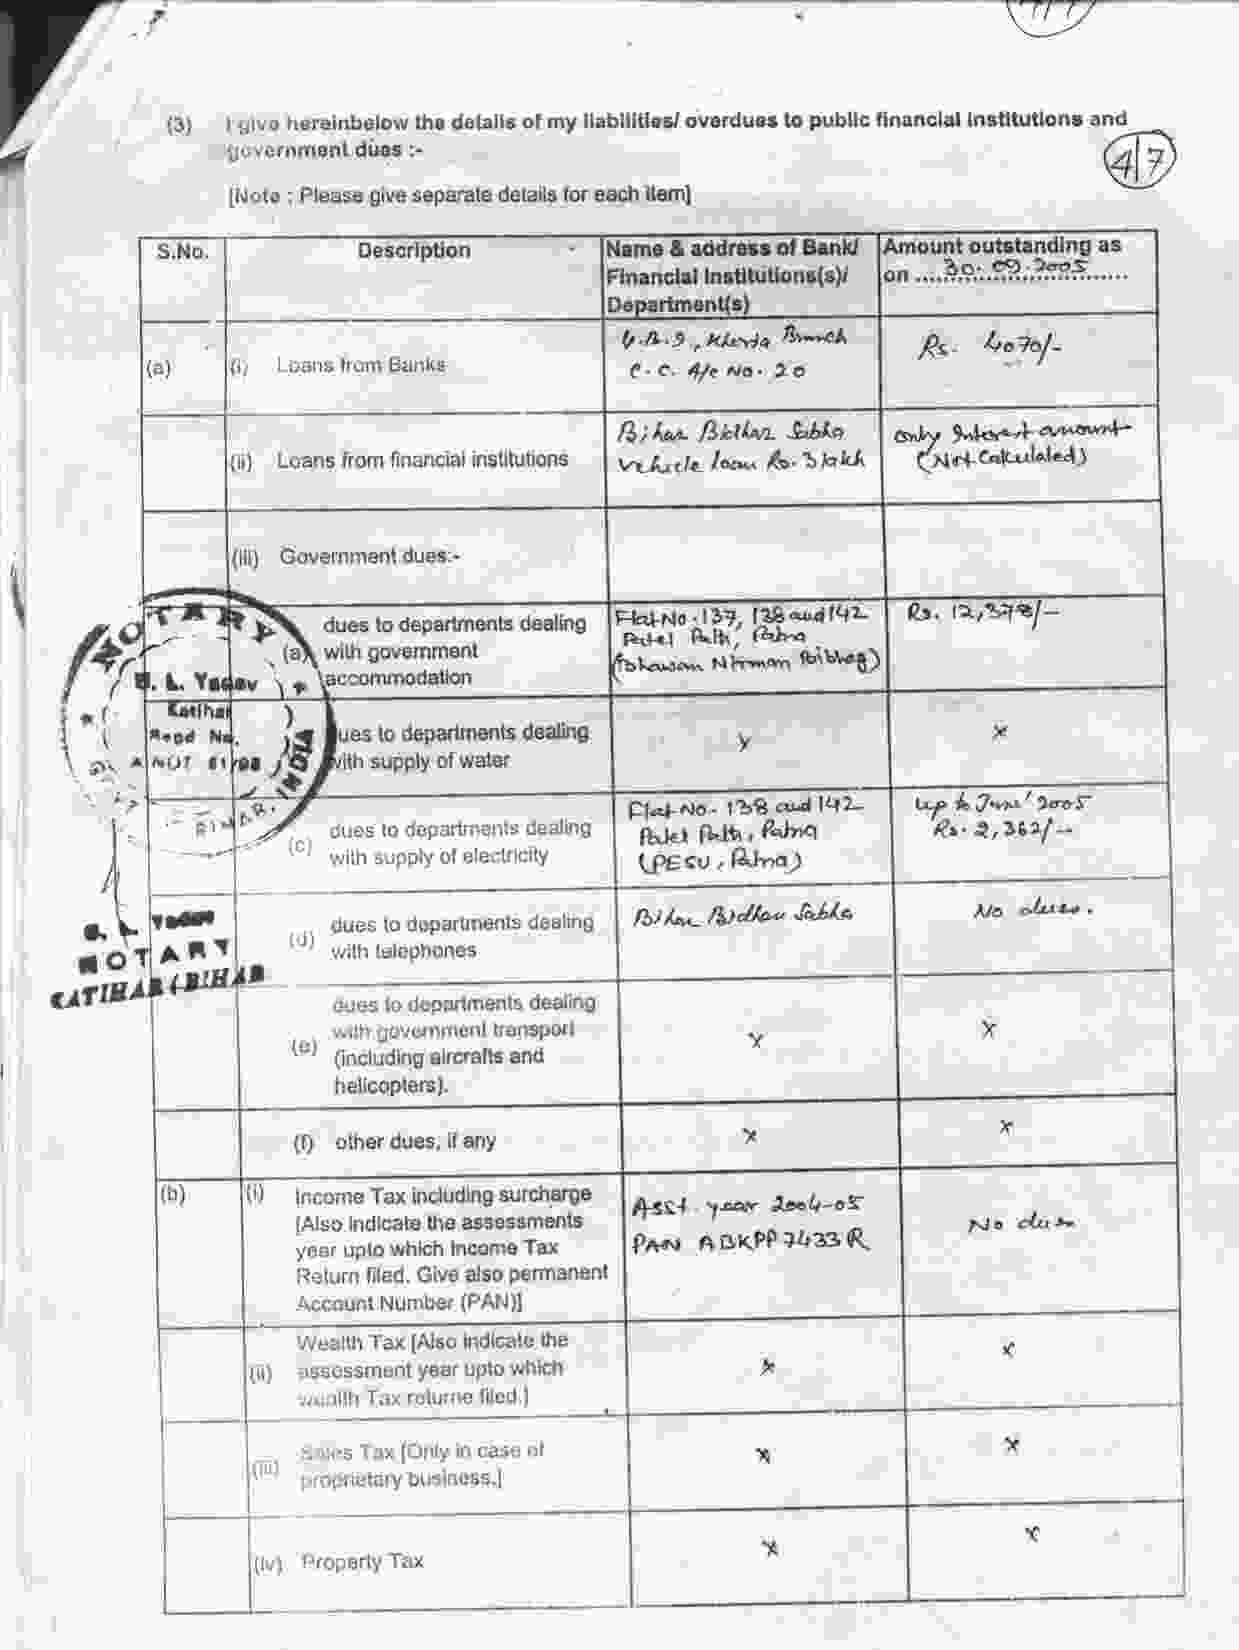 (3) I give hereinbelow the details of my liabilities/ overdues to public financial institutions and
government dues :-
4/7
[Note : Please give separate details for each item]
S.No. Description Name & address of Bank/ Financial Institutions(s)/ Department(s) Amount outstanding as on 30.09.2005
(a) (i) Loans from Banks
Branch
C.C. A/c No. 20
Rs. 4070/-
(ii) Loans from financial institutions
Bihar Bidhan Sabha
Vehicle loan Rs. 3 lakh
only Interest amount
(Not Calculated)
(iii) Government dues:-
(a) dues to departments dealing
with government
accommodation
Flat No. 137, 138 and 142
Patel Path, Patna
(Bhawan Nirman Bibhag)
Rs. 12,378/-
dues to departments dealing
with supply of water
x x
(c) dues to departments dealing
with supply of electricity
Flat No. 138 and 142
Patel Path, Patna
(PESU, Patna)
up to June' 2005
Rs. 2,362/--
(d) dues to departments dealing
with telephones
Bihar Bidhan Sabha
No dues.
(e) dues to departments dealing
with government transport
(including aircrafts and
helicopters).
x x
(f) other dues, if any x x
(b) (i) Income Tax including surcharge
[Also indicate the assessments
year upto which Income Tax
Return filed. Give also permanent
Account Number (PAN)]
Asst. year 2004-05
PAN ABKPP7433R
No dues
(ii) Wealth Tax [Also indicate the
assessment year upto which
wealth Tax returne filed.]
x x
(iii) Sales Tax [Only in case of
proprietary business.]
x x
(iv) Property Tax x x
NOTARY
Yadav
Katihar
Regd No.
BIHAR. INDIA
Yadav
NOTARY
KATIHAR (BIHAR